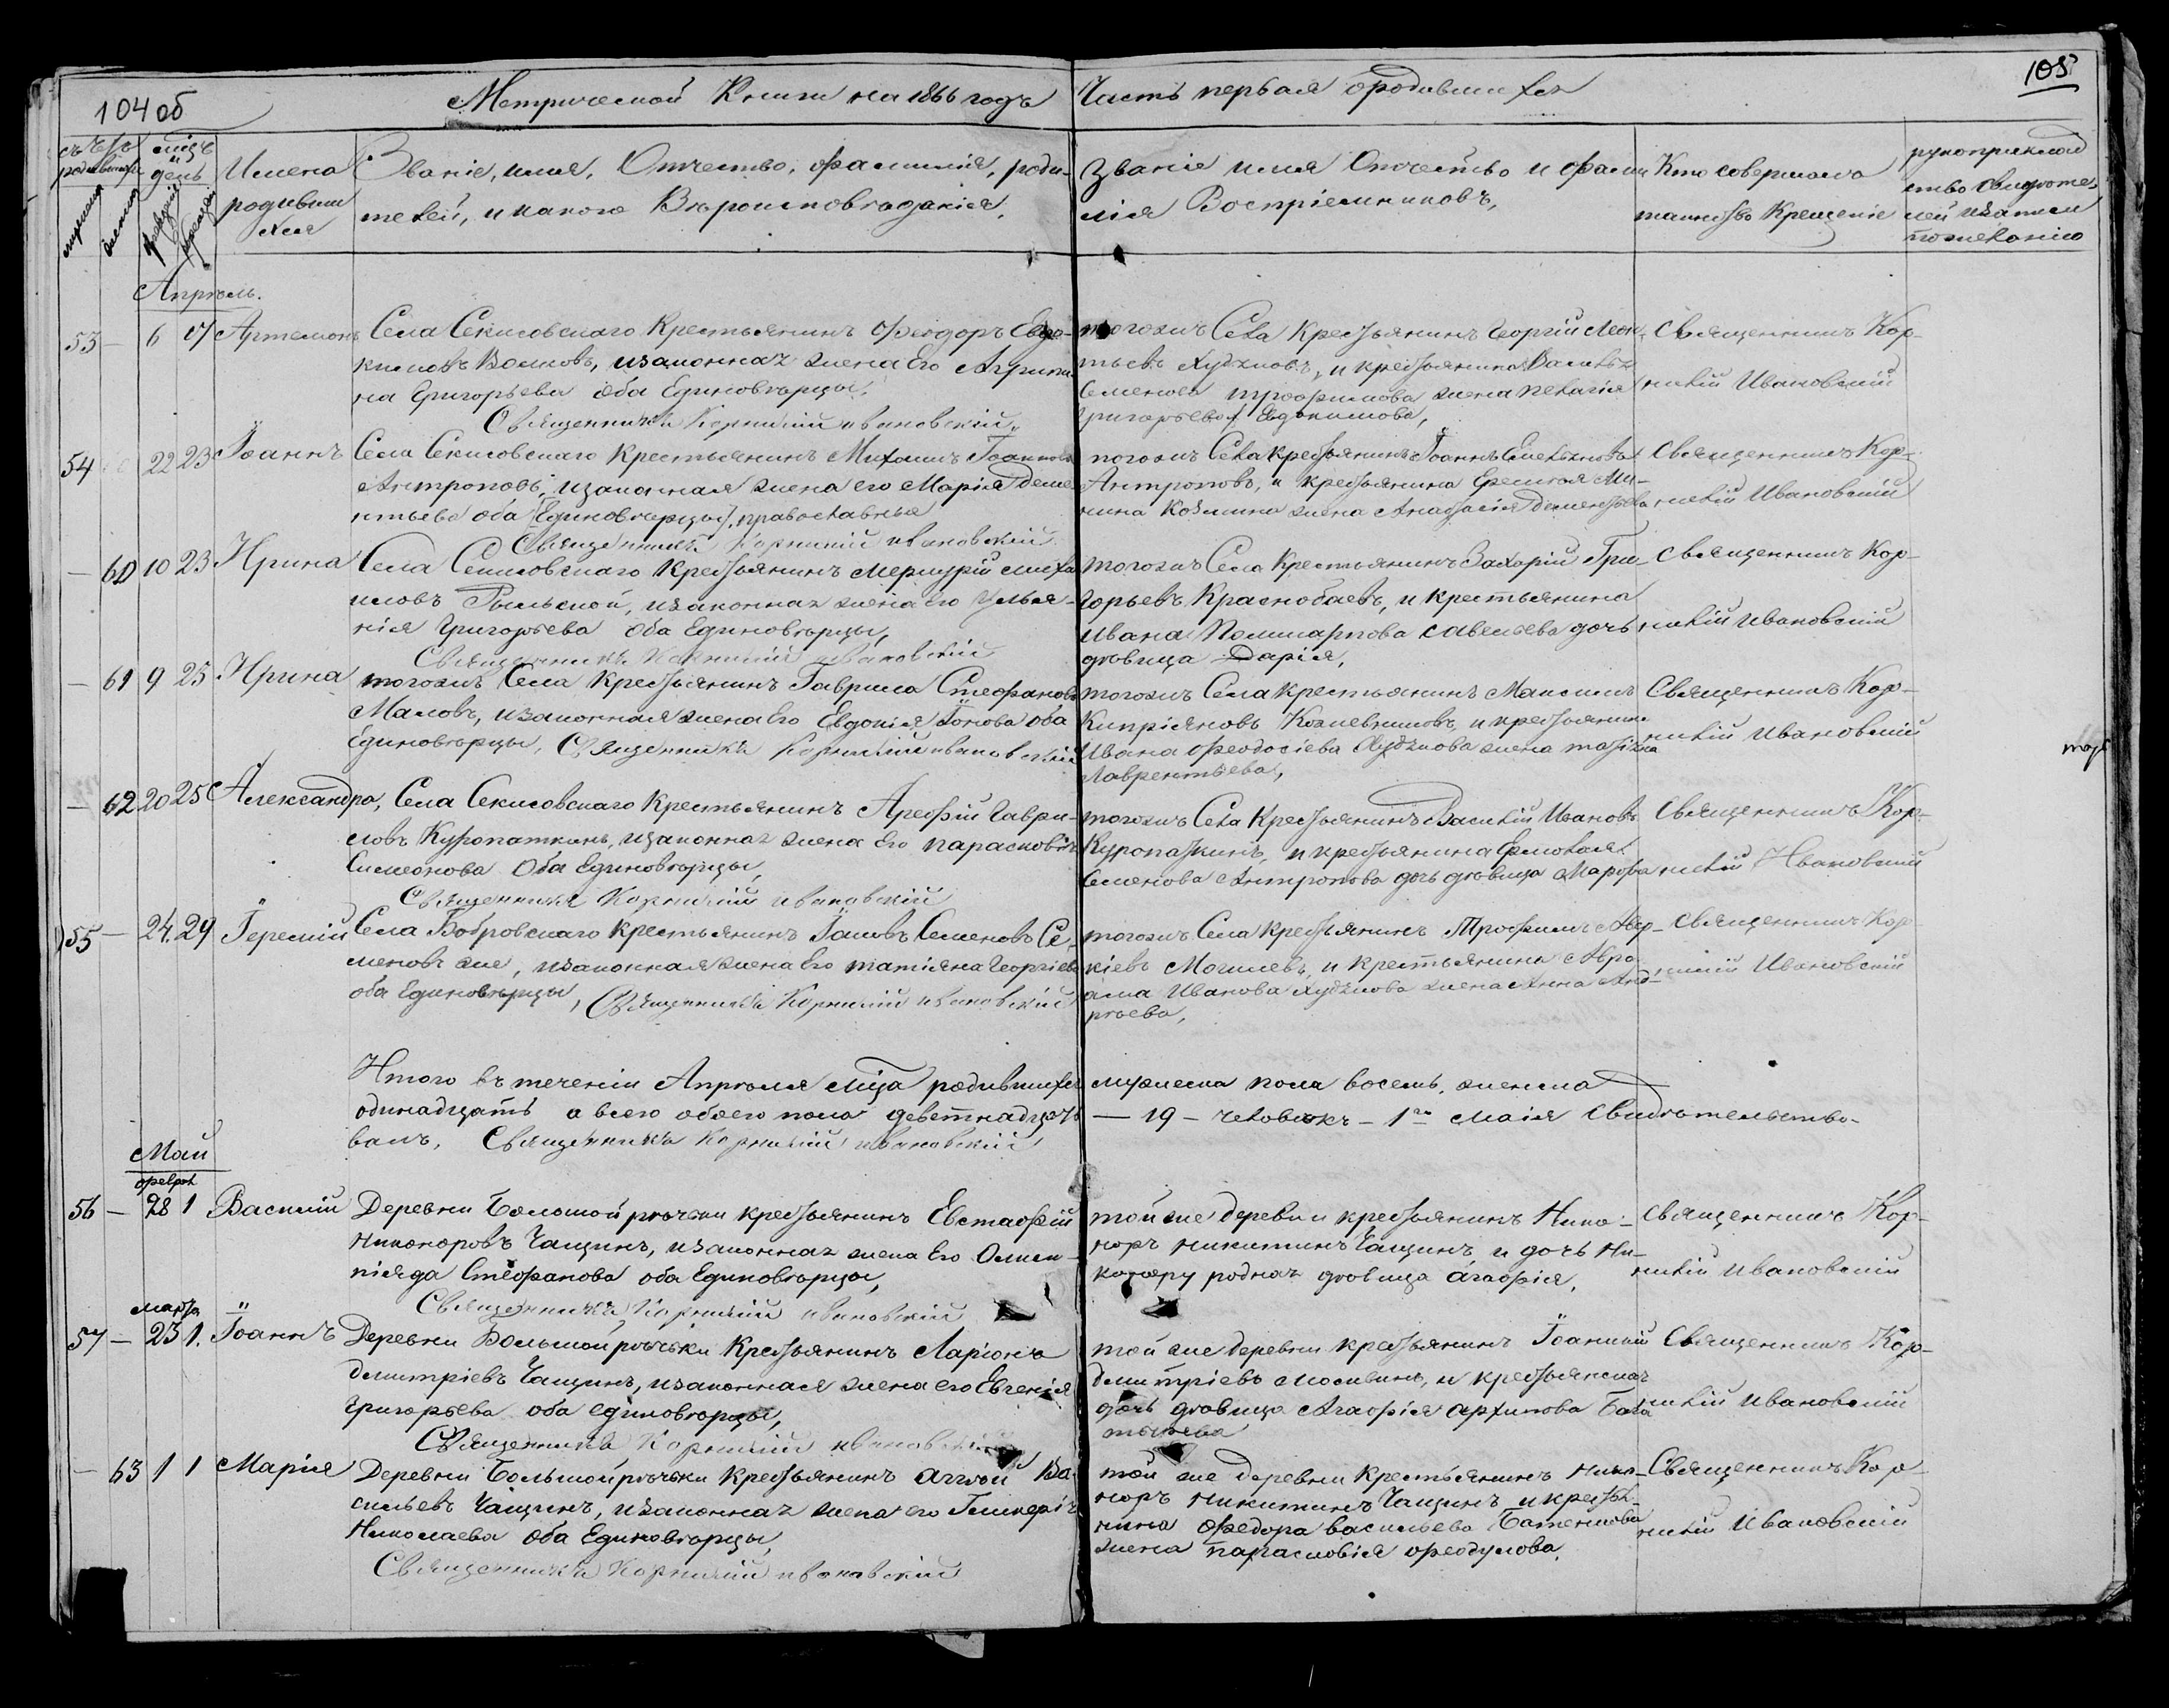 104 об
Метрической Книги на 1866 годъ
Часть первая о родившихся
105
Мѣсяцъ и день
рожденія
крещенія
Имена родившихся
Званіе, имя, Отчество, фамилія, роди-
телей, и какого Вѣроисповѣданія.
Званіе имя Отчество и фами
лія Воспріемниковъ,
Кто совершалъ
таинство Крещеніе
рукоприклад
ство свидѣте
лей записи
по желанію
Апрѣль.
53 – 6 7 Артемонъ
Села Секисовскаго Крестьянинъ Феодоръ Евдо-
кимовъ Волковъ, и законная жена Его Агрипи
на Григорьева оба Единовѣрцы,
Священникъ Корнилій Ивановскій.
тогожъ Села Крестьянинъ Георгій Леон
тьевъ Худяковъ, и крестьянина Василья
Семенова Трофимова жена Пелагія
Григорьева Евдокимова,
Священникъ Кор-
нилій Ивановскій
54 22 23 Іоаннъ
Села Секисовскаго Крестьянинъ Михаилъ Іоанновъ
Антроповъ, и законная жена его Марія Деме
нтьева оба Единовѣрцы, православныя
Священникъ Корнилій Ивановскій
тогожъ Села крестьянинъ Іоаннъ Емельяновъ
Антроповъ, и крестьянина Ермолая Ми-
нина Козмина жена Анастасія Дементьева
Священникъ Кор-
нилій Ивановскій
– 60 10 23 Ирина
Села Секисовскаго Крестьянинъ Меркурій Миха
иловъ Рыльской, и законная жена его Улья-
нія Григорьева оба Единовѣрцы,
Священникъ Корнилій Ивановскій
тогожъ Села Крестьянинъ Захарій Гри-
горьевъ Краснобаевъ, и крестьянина
Ивана Поликарпова Савельева дочь
дѣвица Дарія,
Священникъ Кор-
нилій Ивановскій
– 61 9 25 Ирина
тогожъ Села Крестьянинъ Гаврила Стефановъ
Маловъ, и законная жена Его Евдокія Іонова оба
Единовѣрцы, Священникъ Корнилій Ивановскій
тогожъ Села крестьянинъ Максимъ
Кипріяновъ Кожевниковъ, и крестьянина
Ивана Феодосіева Худякова жена Татіяна
Лаврентьева,
Священникъ Кор-
нилій Ивановскій
– 62 20 25 Александра,
Села Секисовскаго Крестьянинъ Арефій Гаври-
ловъ Куропаткинъ, и законная жена Его Парасковія
Симеонова Оба Единовѣрцы,
Священникъ Корнилій Ивановскій
тогожъ Села Крестьянинъ Василій Ивановъ
Куропаткинъ, и крестьянина Ермолая
Семенова Антропова дочь дѣвица Марфа
Священникъ Кор-
нилій Ивановскій
55 – 24. 29 Іеремій
Села Бобровскаго Крестьянинъ Іаковъ Семеновъ Се-
меновъ же, и законная жена Его Татіяна Георгіева
оба Единовѣрцы, Священникъ Корнилій Ивановскій
тогожъ Села крестьянинъ Трофимъ Авер-
кіевъ Могилевъ, и крестьянина Авра-
ама Иванова Худякова жена Анна Анд-
рѣева,
Священникъ Кор
нилій Ивановскій
Итого въ теченіи Апрѣля мѣсяца родившихся
мужеска пола восемь, женска
одинадцать а всего обоего пола девятнадцать
– 19 – человѣкъ – 1го Маія Свидѣтельство-
валъ, Священникъ Корнилій Ивановскій
Май
феврал
56 – 28 1 Василій
Деревни Большой рѣчки крестьянинъ Евстафій
Никоноровъ Чащинъ, и законная жена Его Олим-
піяда Стефанова оба Единовѣрцы,
Священникъ Корнилій Ивановскій
той же деревни крестьянинъ Нико-
норъ Никитинъ Чащинъ и дочь Ни-
канору родная дѣвица Агафія,
Священникъ Кор-
нилій Ивановскій
марта
57 – 23 1. Іоаннъ
Деревни Большой рѣчьки Крестьянинъ Ларіонъ
Дмитріевъ Чащинъ, и законная жена его Евгенія
Григорьева оба единовѣрцы,
Священникъ Корнилій Ивановскій
той же деревни крестьянинъ
Дмитріевъ Мосикинъ, и крестьянская
дочь дѣвица Агафія Архипова
Священникъ Кор-
нилій Ивановскій
– 63 1 1 Марія
Деревни Большой рѣчьки Крестьянинъ Аггѣй Ва-
сильевъ Чащинъ, и законная жена его Гликерія
Николаева оба Единовѣрцы,
Священникъ Корнилій Ивановскій
той же деревни Крестьянинъ Ника-
норъ Никитинъ Чащинъ и крестья-
нина Федора Васильева
жена Парасковія Феодулова,
Священникъ Кор-
нилій Ивановскій